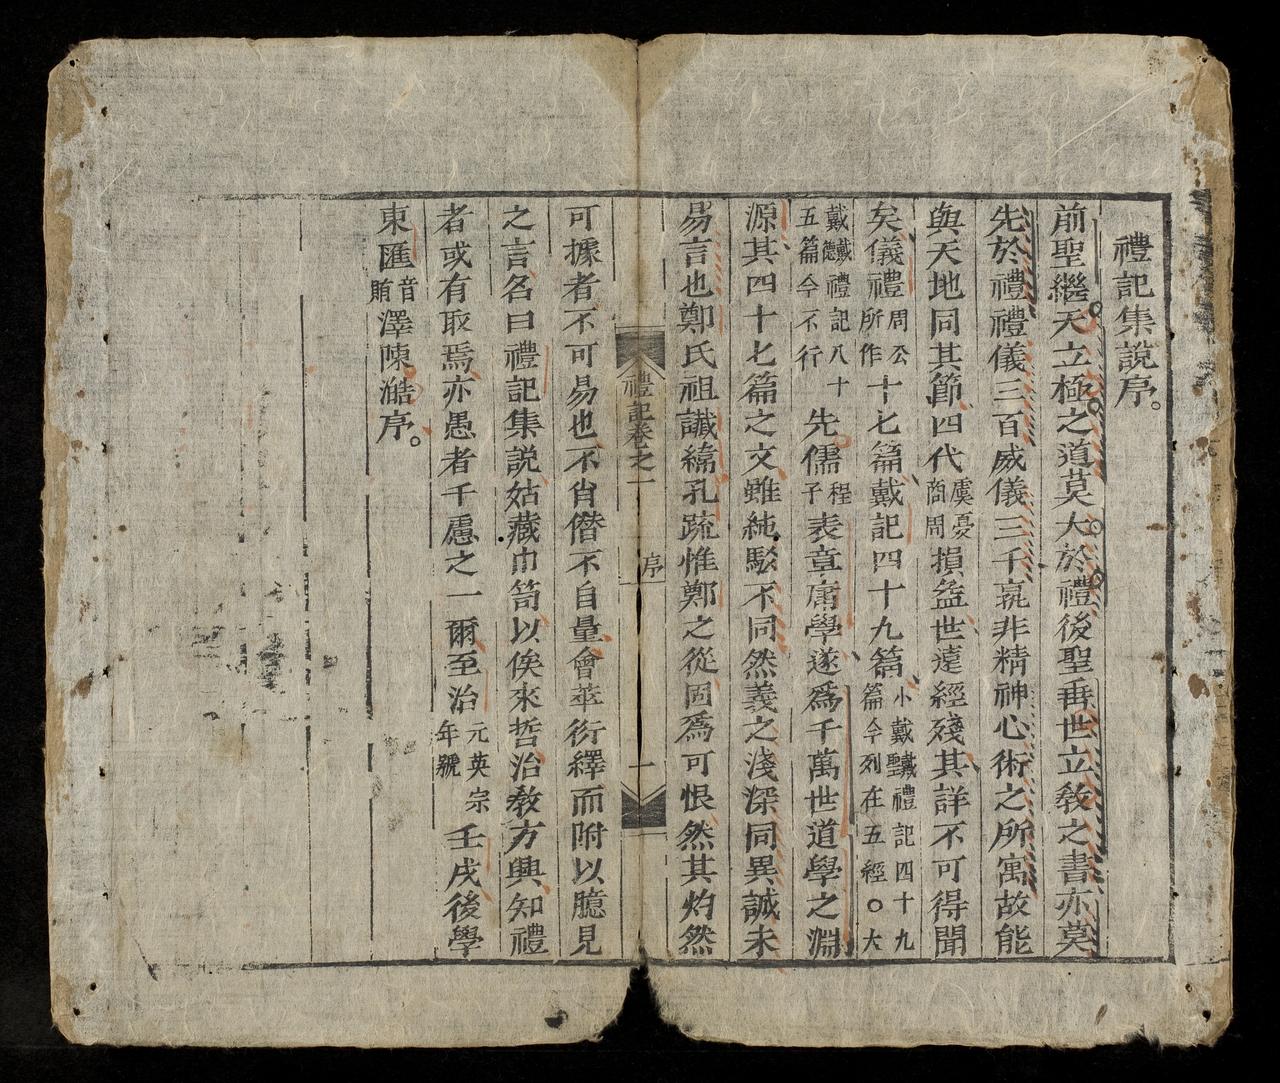 禮記集說序。
前聖繼天立極之道莫大於禮後聖垂世立教之書亦莫
先於禮禮儀三百威儀三千孰非精神心術之所寓故能
與天地同其節四代虞夏商周損益世遠經殘其詳不可得聞
矣儀禮周公所作十七篇戴記四十九篇小戴戴聖禮記四十九篇今列在五經○大
戴戴德禮記八十五篇今不行先儒程子表章庸學遂爲千萬世道學之淵
源其四十七篇之文雖純駁不同然義之淺深同異誠未
易言也鄭氏祖讖緯孔疏惟鄭之從固爲可恨然其灼然
禮記卷之一 序 一
可據者不可易也不肖僭不自量會萃衍繹而附以臆見
之言名曰禮記集說姑藏巾笥以俟來哲治教方興知禮
者或有取焉亦愚者千慮之一爾至治元英宗年號壬戌後學
東匯音賄澤陳澔序。